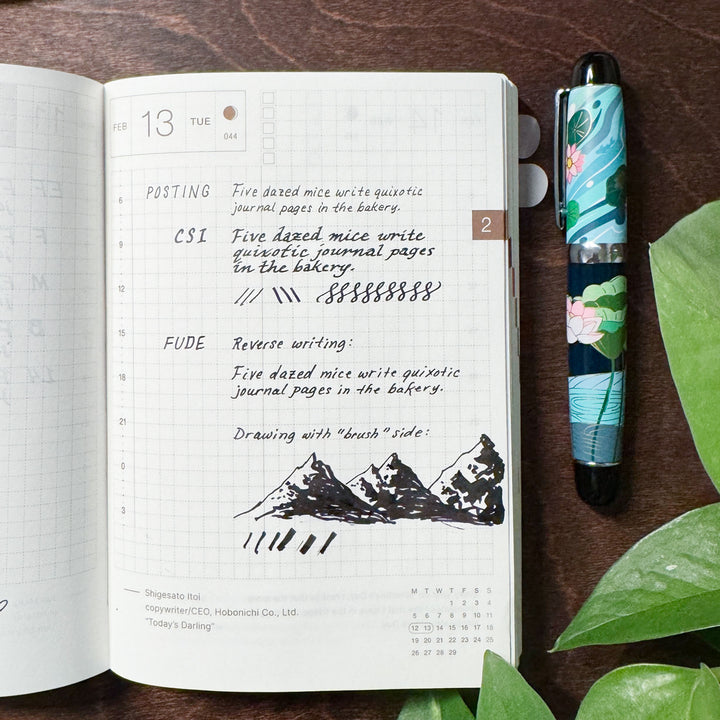 FEB 13 TUE
044
2
POSTING Five dazed mice write quixotic
journal pages in the bakery.
CSI Five dazed mice write
quixotic journal pages
in the bakery.
FUDE Reverse writing:
Five dazed mice write quixotic
journal pages in the bakery.
Drawing with "brush" side:
6
9
12
15
18
21
0
3
Shigesato Itoi
copywriter/CEO, Hobonichi Co., Ltd.
"Today's Darling"
M T W T F S S
1 2 3 4
5 6 7 8 9 10 11
12 13 14 15 16 17 18
19 20 21 22 23 24 25
26 27 28 29